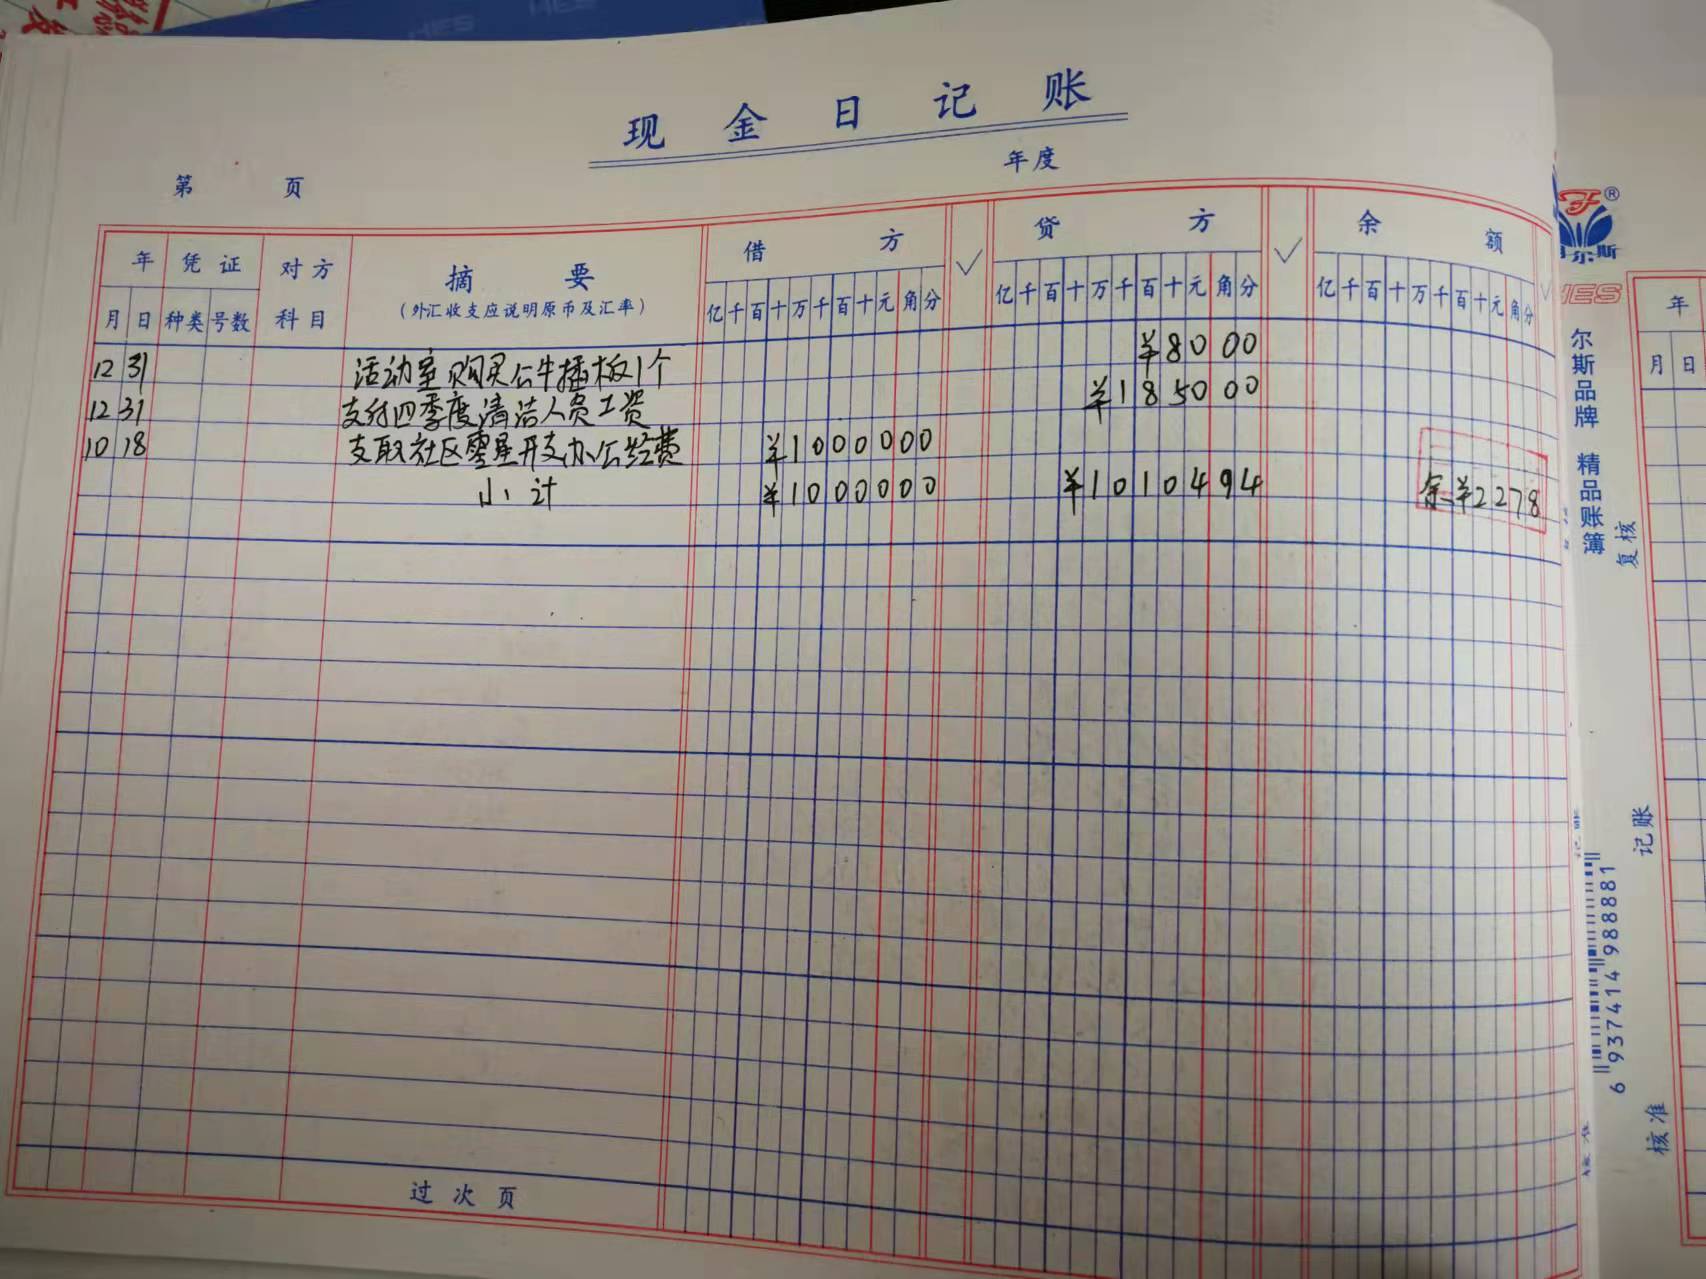 HES HES
现金日记账
年度
第 页
年 凭证 对方 摘要 借方 ✓ 贷方 ✓ 余额
月 日 种类 号数 科目 (外汇收支应说明原币及汇率) 亿千百十万千百十元角分 亿千百十万千百十元角分 亿千百十万千百十元角分 ✓
12 31 活动室购买公牛插板1个 ¥8000
12 31 支付四季度清洁人员工资 ¥185000
10 18 支取社区零星开支办公经费 ¥1000000
小计 ¥1000000 ¥1010494 余¥2278
过次页
®
尔斯
HES
尔斯品牌 精品账簿
复核
记账
核准
6 937414 988881
年
月 日